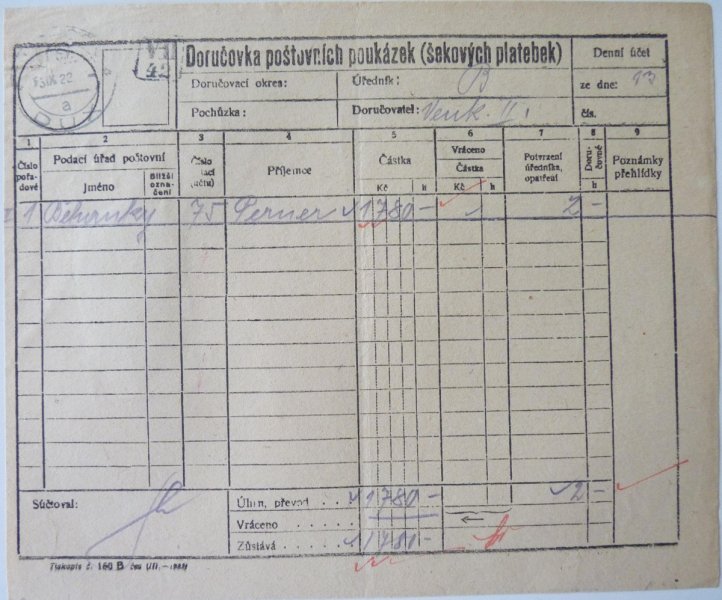 13.IX.22
a
DUC
Doručovka poštovních poukázek (šekových platebek)
Denní účet
Doručovací okres:
Úředník: B
ze dne: 13
Pochůzka:
Doručovatel: Venk. II.
čís.
1 2 3 4 5 6 7 8 9
Číslo pořadové
Podací úřad poštovní
Jméno
Bližší označení
Číslo
Příjemce
Částka
Kč h
Vráceno
Částka
Kč h
Potvrzení úředníka, opatření
Doručovné
h
Poznámky přehlídky
1 75 Perner 1780 – 2 –
Súčtoval:
Úhrn, převod . . 1780 – 2 –
Vráceno . . . . .
Zůstává . . . . 1780 –
Tiskopis č. 160 B